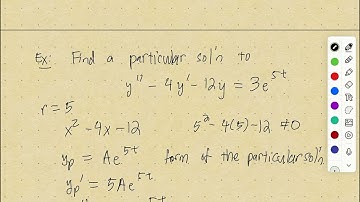 Ex: Find a particular sol'n to
y'' - 4y' - 12y = 3e^5t
r = 5
x² - 4x - 12    5² - 4(5) - 12 ≠ 0
yp = Ae^5t    form of the particular sol'n
yp' = 5Ae^5t